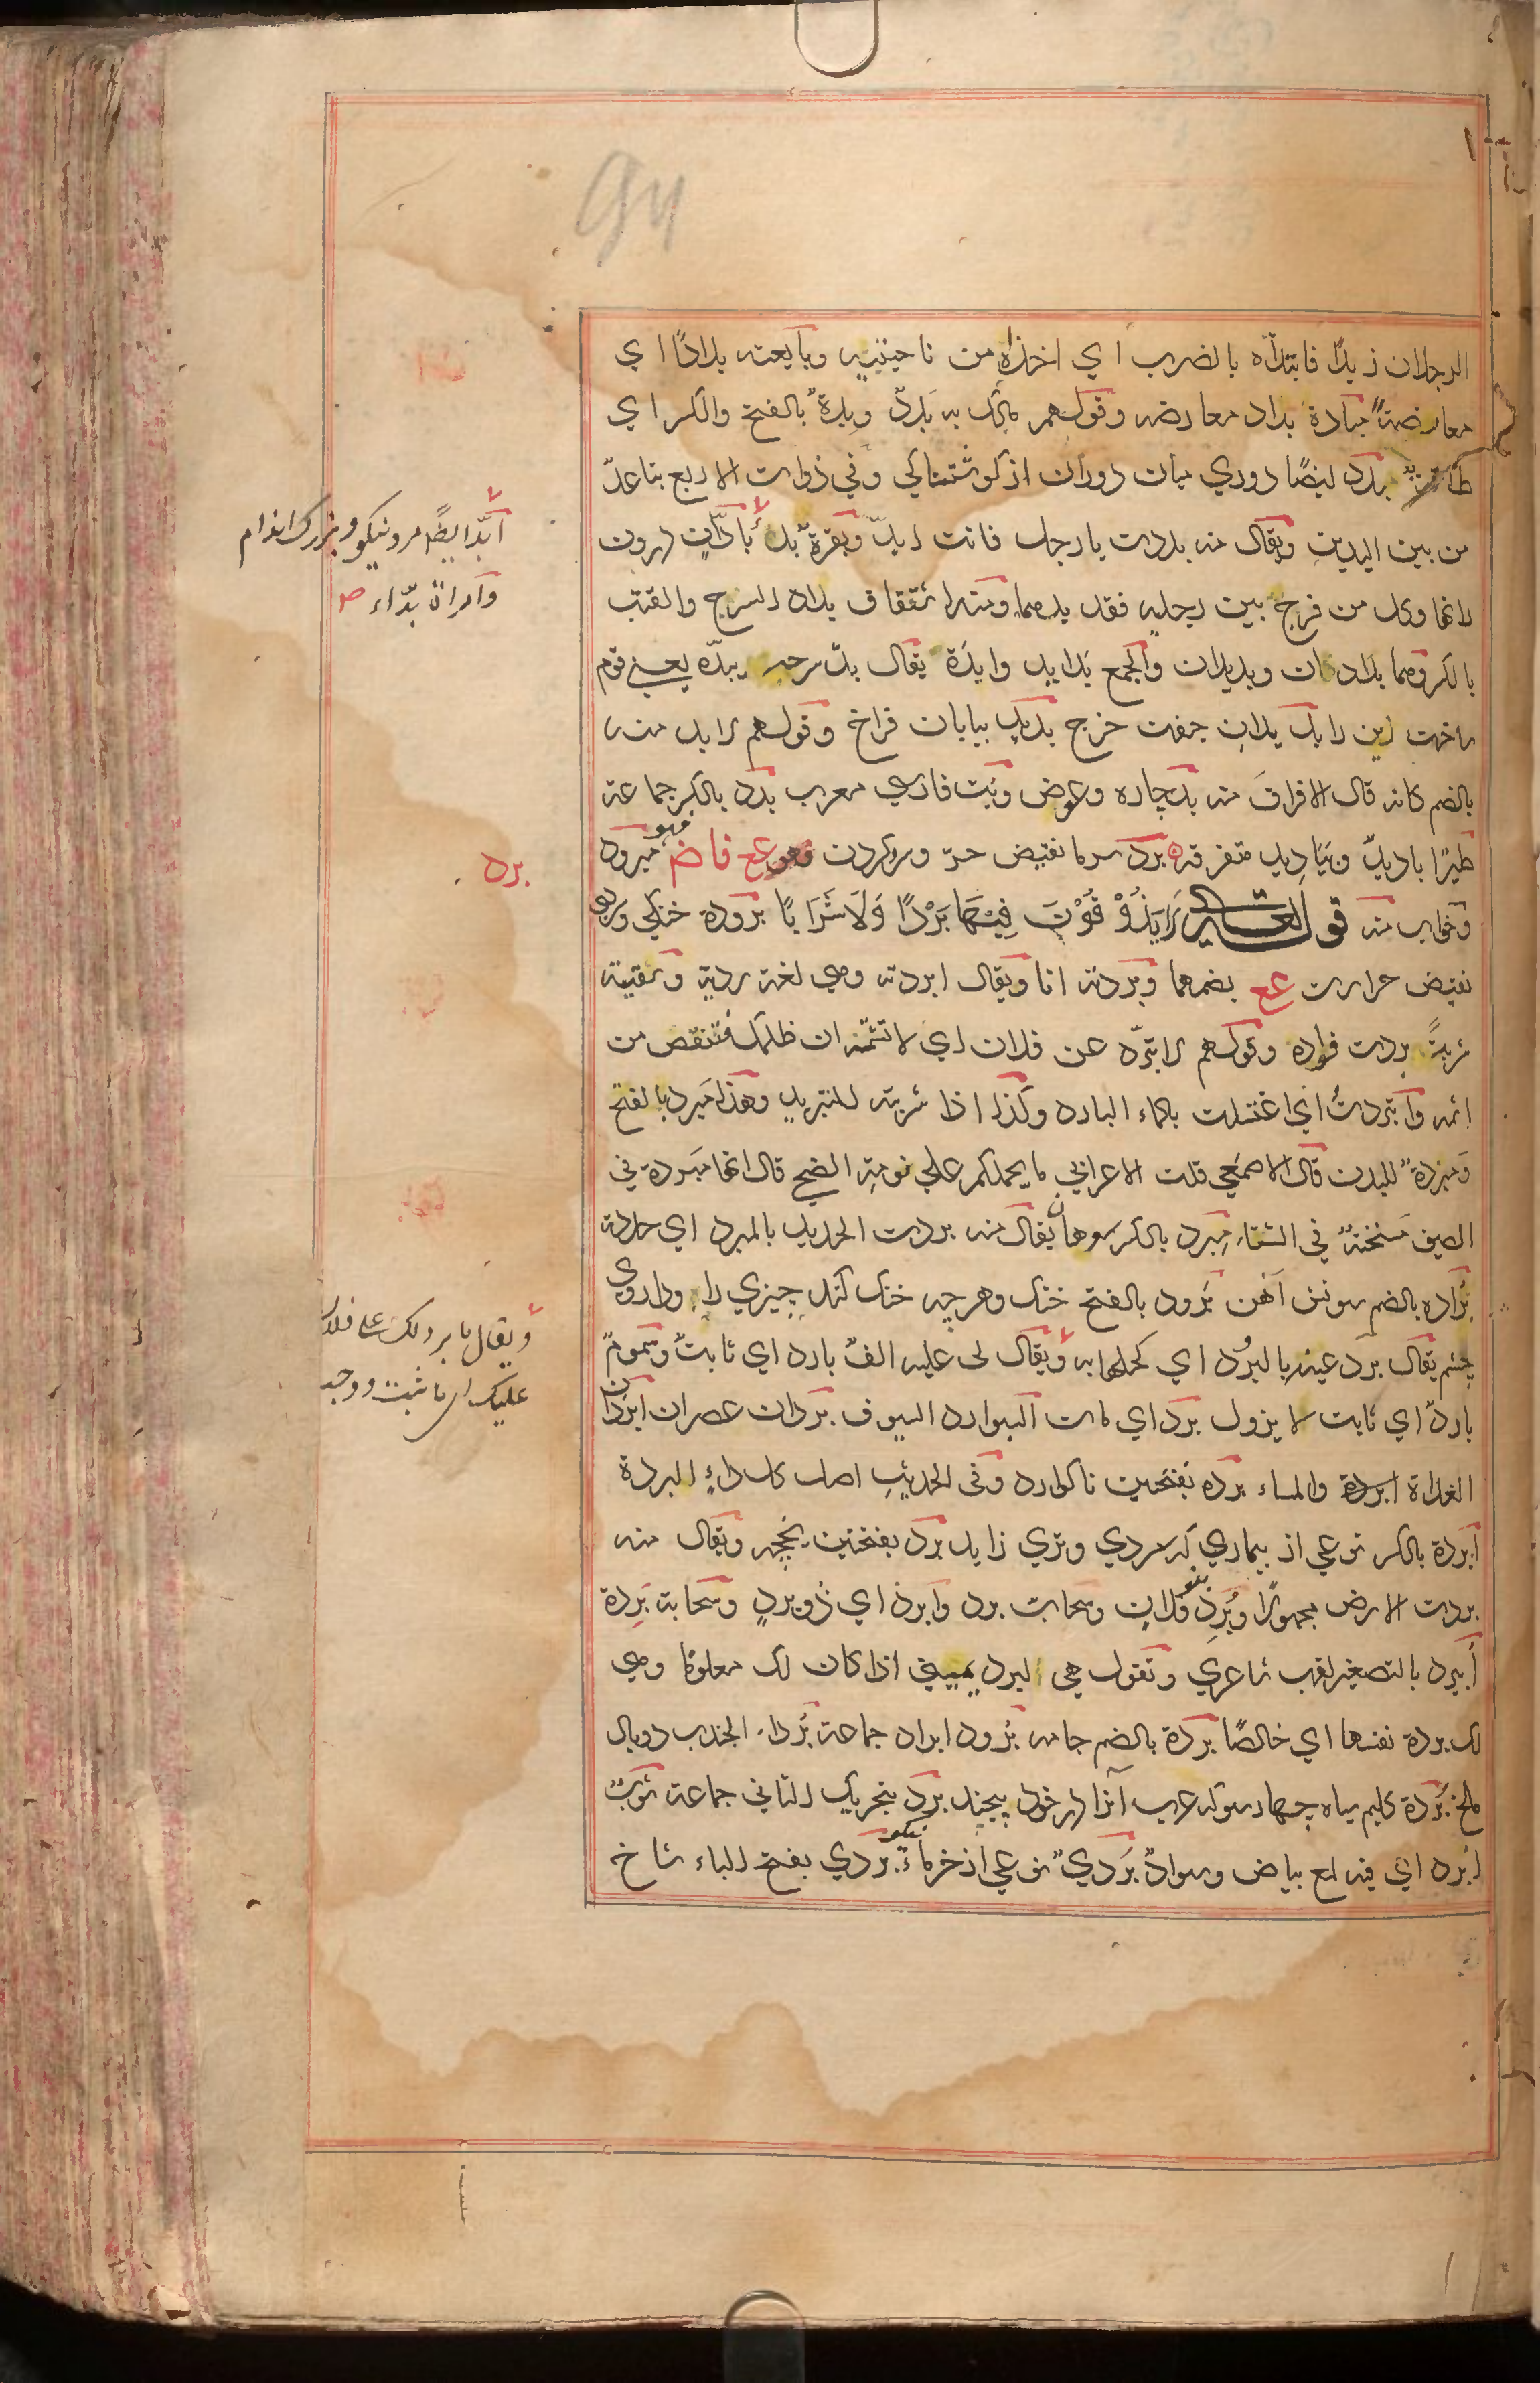 94
الرجلان زيدًا فابتدّاه بالضرب اي اخذاه من ناحيتيه وبايعته بدادًا اي
معارضةً مبادة بداد معارضه وقولهم مالك به بَددٌ وبِدةٌ بالفتح والكسر اي
طاقة بدد ايضًا دوري ميان دوران از كوشتناكي وفي ذوات الاربع تباعدٌ
من بين اليدين ويقال منه بددت يا رجل فانت ابدّ وبقرةٌ بداء بادّان درون
رانها وكل من فرج بين رجليه فقد بدهما ومنه اشتقاق بداد السرج والقتب
بالكسر وهما بدادان وبديدان والجمع بدايد وابدّة يقال بدّ سرجه يبدّه يعني قوم
ساخت زين را بدّ بدان جفت خرج بديد بيابان فراخ وقولهم لا بد منه
بالضم كانه قال لا فراق منه بد چاره وعوض وبُت فارسي معرب بدد بالكسر جماعة
طيرًا باديدٌ ويَبَاديد متفرقه برد سرما نقيض حرّ وسرد كردن وهو مع فاض فهو مبرود
وخواب منه قوله تعالى لَا يَذُوْقُوْنَ فِيْهَا بَرْدًا وَلَا شَرَابًا برودة خنكي وسردي
نقيض حرارت مع بضمهما وبردته انا ويقال ابردته وهي لغة ردية وسقيته
شربةً بردت فواده وقولهم لا تبرّد عن فلان اي لا تشتمه ان ظلمك فتنقص من
اثمه وابتردتُ اي اغتسلت بالماء البارد وكذا اذا شربته للتبريد وهذا مَبرد بالفتح
ومبردةٌ للبدن قال الاصمعي قلت الاعرابي ما يحملكم على نومة الضحى قال انها مبردة في
الصيف مسخنةٌ في الشتاء مِبرد بالكسر سوهان يقال منه بردت الحديد بالمبرد اي حددته
بُراده بالضم سونش آهن بَرود بالفتح خنك وهرچه خنك كند چيزي را وداروي
چشم يقال برد عينه بالبرود اي كحلها به ويقال لي عليه الفٌ بارد اي ثابتٌ وسمومٌ
باردٌ اي ثابت لا يزول برد اي مات البوارد السيوف بردان عصران ابردان
الغداة والمساء برده بفتحتين ناكوارد وفي الحديث اصل كل داءٍ البردة
ابردة بالكسر نوعي از بيماري كه سردي وتري زايد برد بفتحتين يخچه ويقال منه
بردت الارض مجهولًا وبُرِد بنو فلان وسحاب برد وابرد اي ذُو بردٍ وسحابة بَرِدة
اُبيرد بالتصغير لقب شاعري وتقول هي البرد يميني اذا كان لك معلومًا وهي
لك بردة نفسها اي خالصًا بردة بالضم جامه بُرود ابراد جماعة بُردا الجندب دو بال
ملخ بُردة كليم سياه چهارسو كه عرب آنرا در خود پيچند برد بتحريك الثاني جماعة ثوبٌ
ابرد اي فيه لمع بياض وسوادٌ بَرديٌ نوعي از خرماء نيكو بردي بفتح الباء شاخ
ابّد ايضًا مرد نيكو وبزرك اندام
وامراة بدّاء صح
برد
ويقال ما برد لك على فلان
عليك اي ما ثبت ووجب